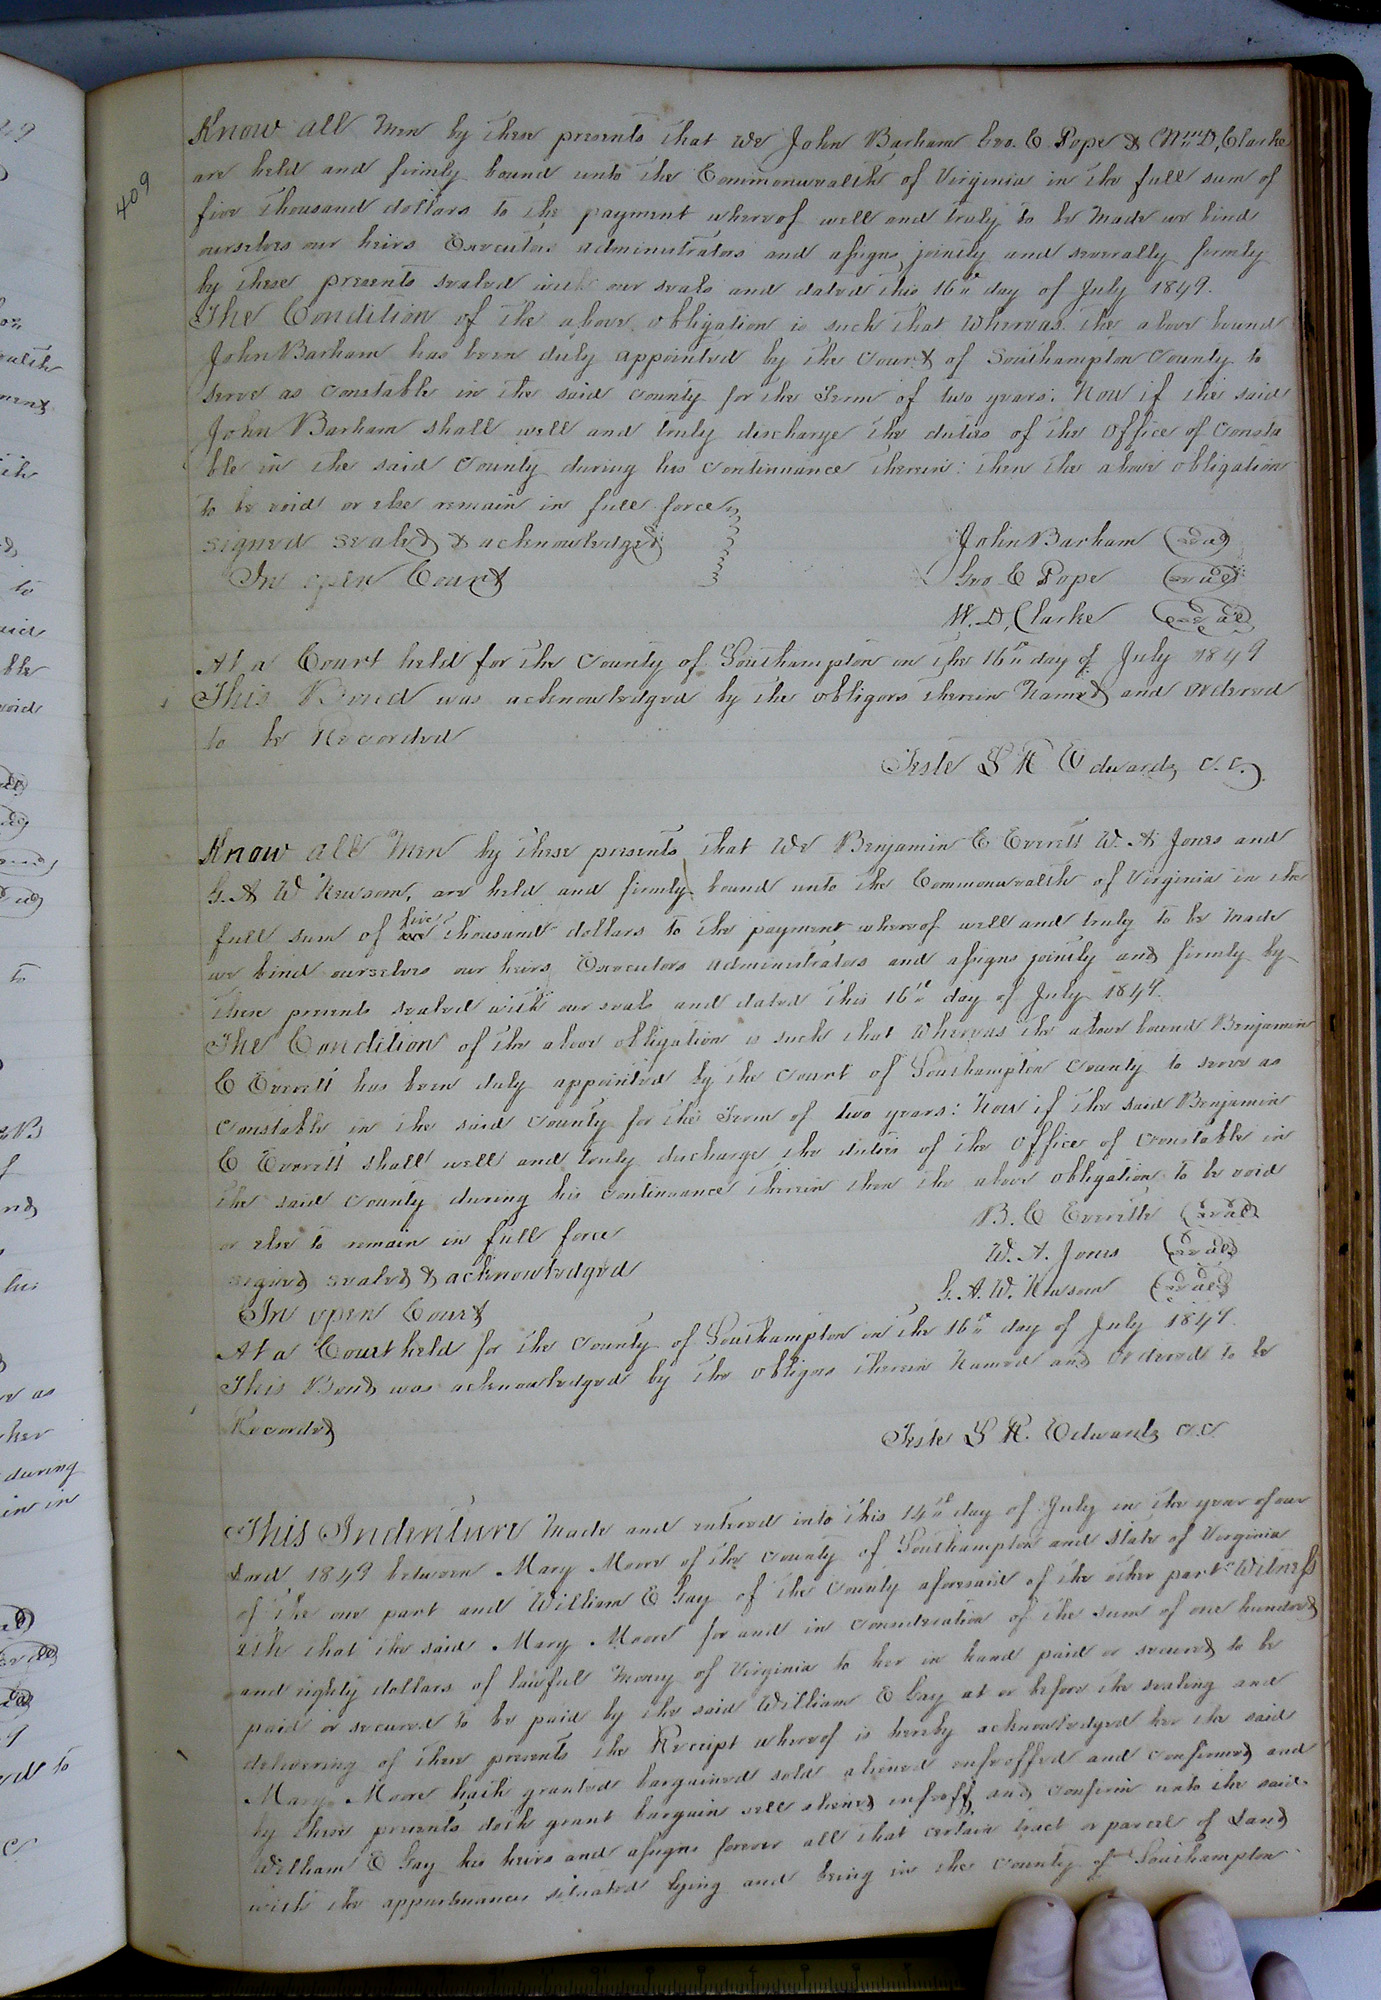 409
Know all Men by these presents that We John Barham Geo. E Pope & Wm D, Clarke
are held and firmly bound unto the Commonwealth of Virginia in the full sum of
five thousand dollars to the payment whereof well and truly to be made we bind
ourselves our heirs Executors administrators and assigns jointly and severally firmly
by these presents sealed with our seals and dated this 16th day of July 1849.
The Condition of the above obligation is such that Whereas the above bound
John Barham has been duly appointed by the Court of Southampton County to
serve as constable in the said county for the Term of two years: Now if the said
John Barham shall well and truly discharge the duties of the Office of Consta
ble in the said County during his continuance therein: then the above obligation
to be void or else remain in full force
signed sealed & acknowledged
In open Court
John Barham (seal)
Geo E Pope (seal)
W. D, Clarke (seal)
At a Court held for the County of Southampton on the 16th day of July 1849
This Bond was acknowledged by the obligors therein Named and Ordered
to be Recorded
Teste L R Edwards C. C.
Know all Men by these presents that We Benjamin E Everett W. A Jones and
G. A W Newsom, are held and firmly bound unto the Commonwealth of Virginia in the
full sum of five thousand dollars to the payment whereof well and truly to be made
we bind ourselves our heirs Executors administrators and assigns jointly and firmly by
these presents sealed with our seals and dated this 16th day of July 1849.
The Condition of the above obligation is such that Whereas the above bound Benjamin
E Everett has been duly appointed by the Court of Southampton County to serve as
Constable in the said County for the Term of two years: Now if the said Benjamin
E Everett shall well and truly discharge the duties of the Office of Constable in
the said County during his continuance therein then the above obligation to be void
or else to remain in full force
signed sealed & acknowledged
In open Court
B. E Everett (seal)
W. A. Jones (seal)
G. A. W. Newsom (seal)
At a Court held for the County of Southampton on the 16th day of July 1849.
This Bond was acknowledged by the obligors therein Named and Ordered to be
Recorded
Teste L R. Edwards C. C.
This Indenture Made and entered into this 14th day of July in the year of our
Lord 1849 between Mary Moore of the County of Southampton and State of Virginia
of the one part and William E Gay of the County aforesaid of the other part Witness
eth that the said Mary Moore for and in consideration of the sum of one hundred
and eighty dollars of lawful Money of Virginia to her in hand paid or secured to be
paid or secured to be paid by the said William E Gay at or before the sealing and
delivering of these presents the Receipt whereof is hereby acknowledged her the said
Mary Moore hath granted bargained sold aliened enfeoffed and confirmed and
by these presents doth grant bargain sell aliened enfeoff and confirm unto the said
William E Gay his heirs and assigns forever all that certain tract or parcel of Land
with the appurtenances situated lying and being in the County of Southampton